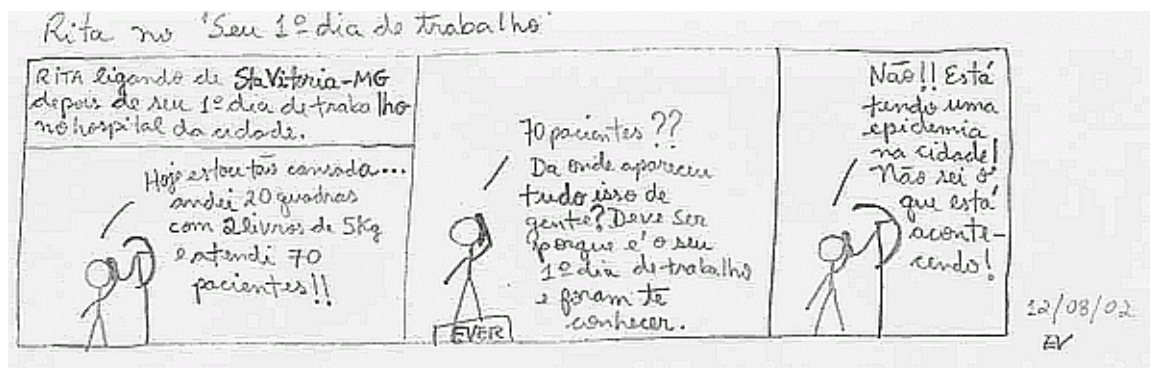 Rita no "Seu 1º dia de trabalho"
RITA ligando de Sta Vitória-MG
depois de seu 1º dia de trabalho
no hospital da cidade.
Hoje estou tão cansada...
andei 20 quadras
com 2 livros de 5kg
e atendi 70
pacientes!!
70 pacientes??
Da onde apareceu
tudo isso de
gente? Deve ser
porque é o seu
1º dia de trabalho
e foram te
conhecer.
EVER
Não!! Está
tendo uma
epidemia
na cidade!
Não sei o
que está
aconte-
cendo!
12/08/02
EV